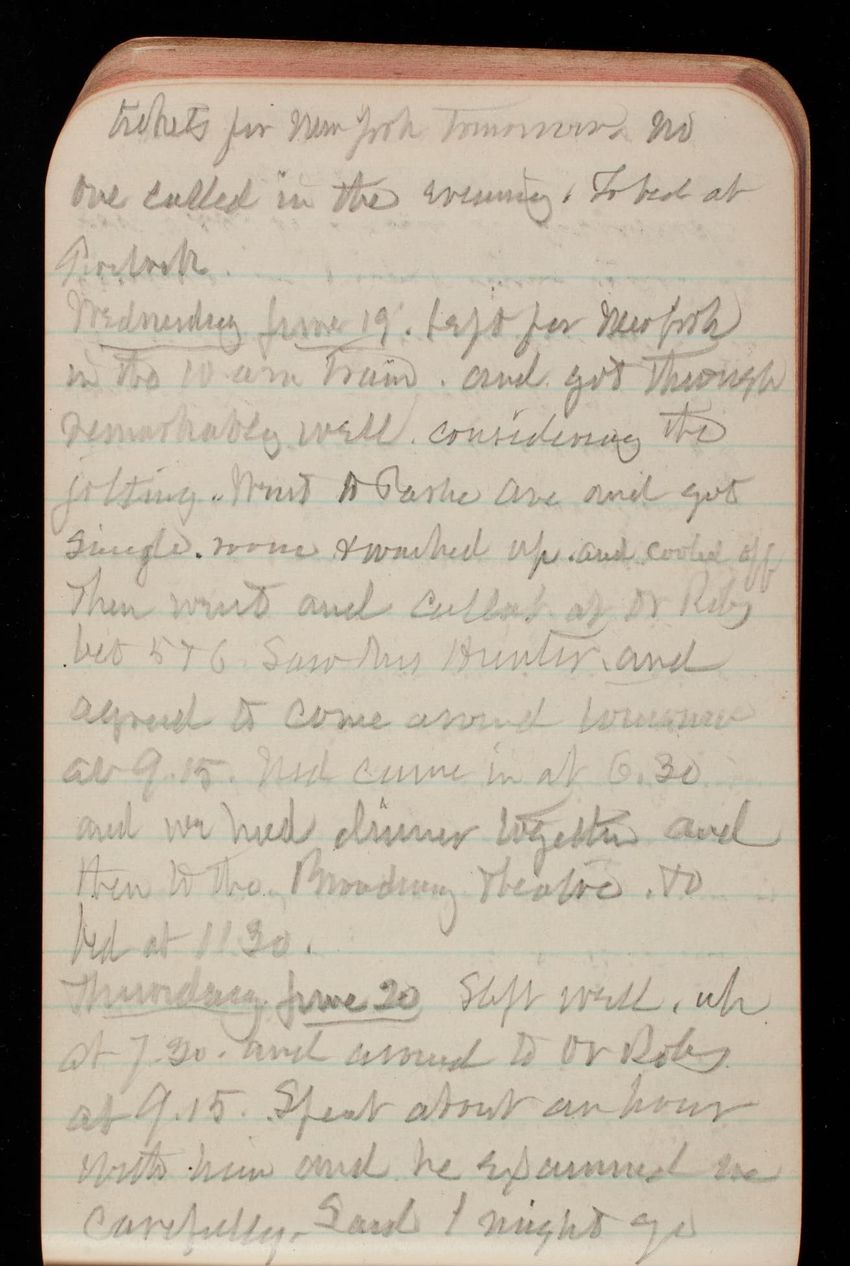 tickets for New York tomorrow. No
one called in the evening. To bed at

Wednesday June 19. Left for New York
in the 10 am train. and got through
remarkably well. considering the
jolting. Went to Parke Ave and got
single. room & washed up. and cooled off
Then went and called at Dr
bet 5 & 6. Saw Mrs Hunter. and
agreed to come around tomorrow
at 9.15. Ned came in at 6.30
and we had dinner together and
then to the Broadway Theatre. to
bed at 11 30.
Thursday June 20 Slept well. up
at 7.30. and around to Dr
at 9.15. Spent about an hour
with him and he examined me
carefully. Said I might go